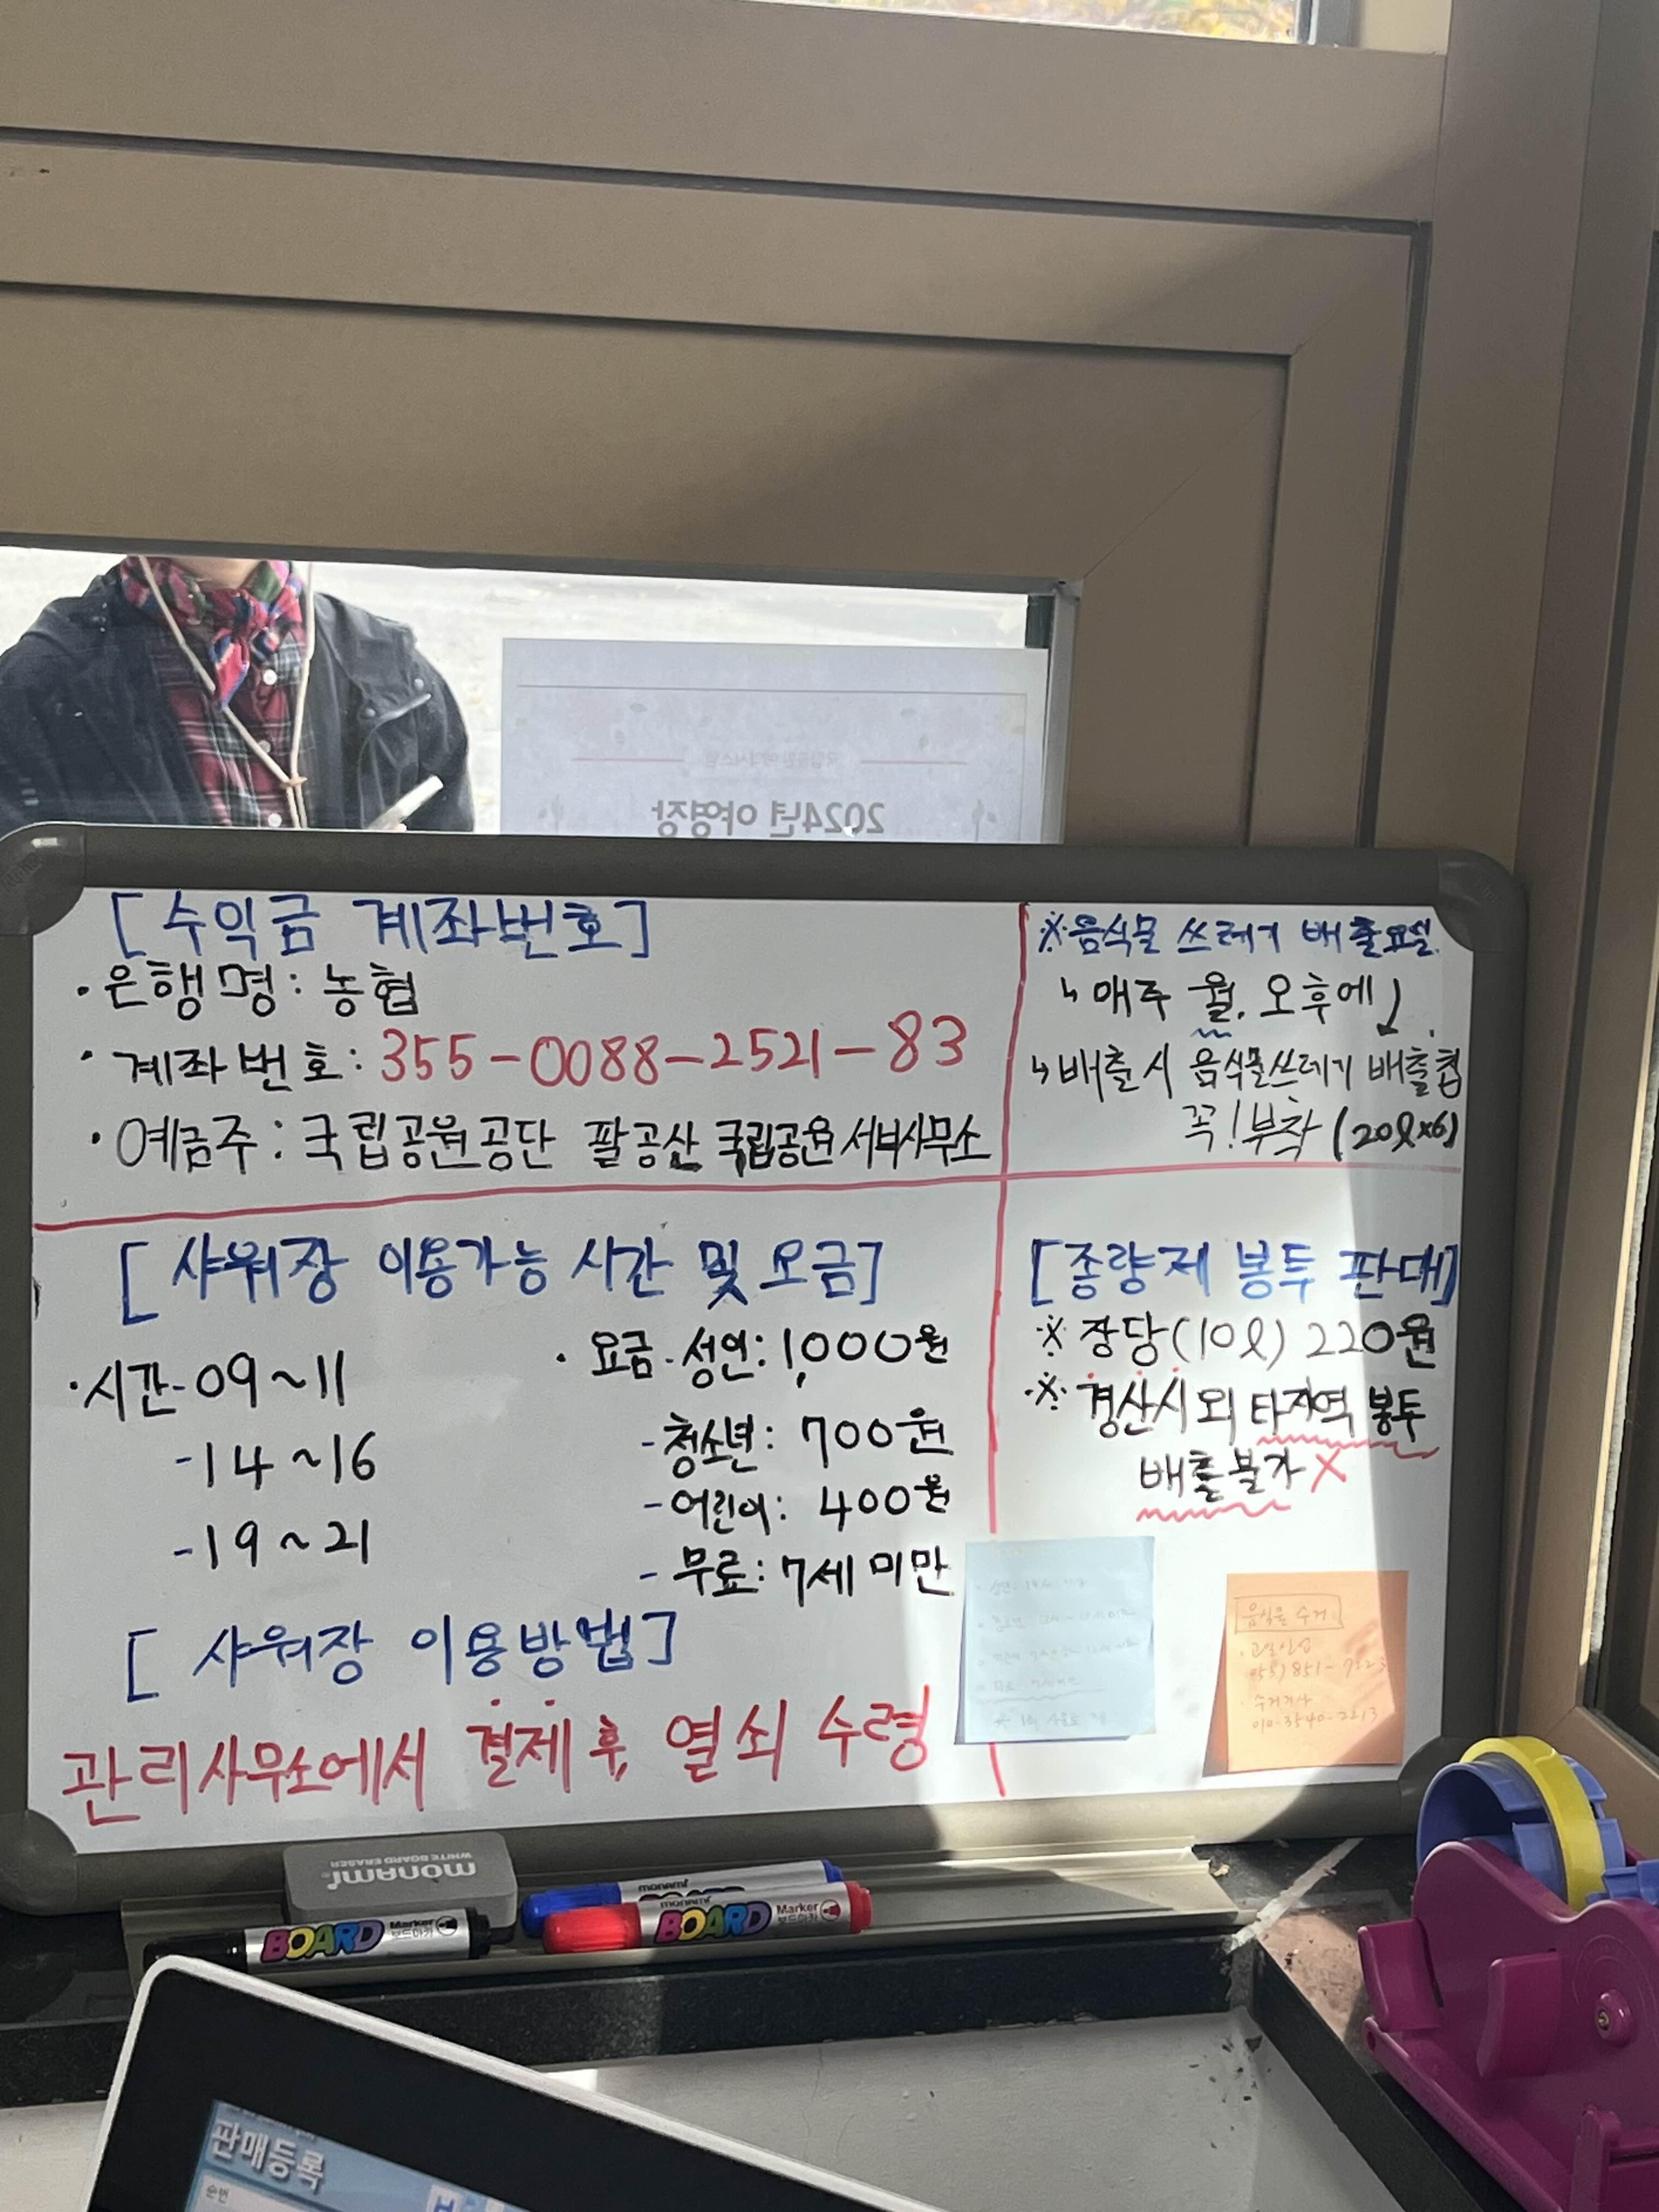 2024년 야영장
[수익금 계좌번호]
· 은행명 : 농협
· 계좌번호 : 355-0088-2521-83
· 예금주 : 국립공원공단 팔공산 국립공원 서부사무소
※음식물 쓰레기 배출요일.
↳ 매주 월, 오후에
↳ 배출시 음식물쓰레기 배출칩
꼭! 부착 (20ℓx6)
[샤워장 이용가능 시간 및 요금]
· 시간 - 09~11
- 14~16
- 19~21
· 요금 - 성인 : 1,000원
- 청소년 : 700원
- 어린이 : 400원
- 무료 : 7세 미만
[종량제 봉투 판매]
※ 장당(10ℓ) 220원
※ 경산시 외 타지역 봉투
배출불가 X
[샤워장 이용방법]
관리사무소에서 결제 후, 열쇠 수령
음식물 수거
수거기사
monami
WHITE BOARD ERASER
BOARD Marker 보드마카
monami
monami
BOARD Marker 보드마카
판매등록
순번